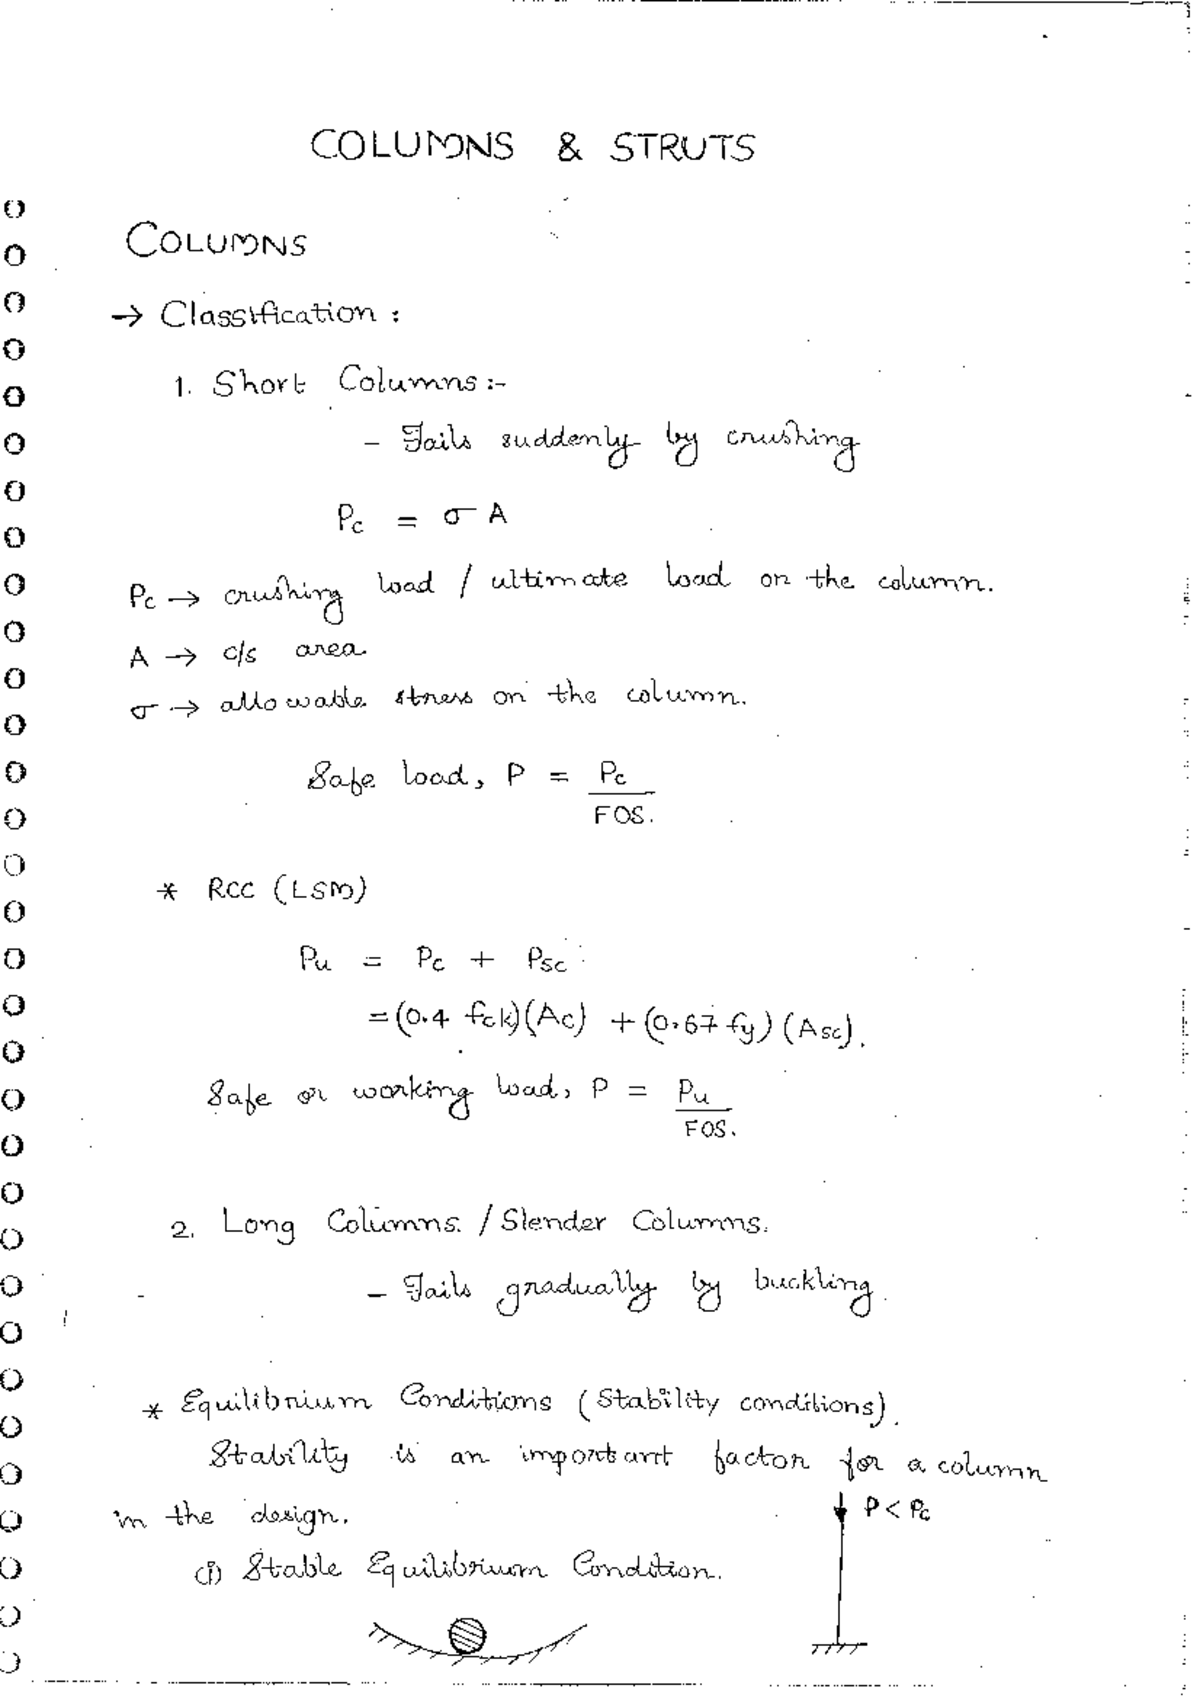 COLUMNS & STRUTS
COLUMNS
→ Classification :
1. Short Columns:-
- Fails suddenly by crushing
Pc = σ A
Pc → crushing load / ultimate load on the column.
A → c/s area
σ → allowable stress on the column.
Safe load, P = Pc
FOS.
* RCC (LSM)
Pu = Pc + Psc
= (0.4 fck)(Ac) + (0.67 fy) (Asc).
Safe or working load, P = Pu
FOS.
2. Long Columns. / Slender Columns.
- Fails gradually by buckling.
* Equilibrium Conditions (Stability conditions).
Stability is an important factor for a column
in the design.
P < Pc
(i) Stable Equilibrium Condition.